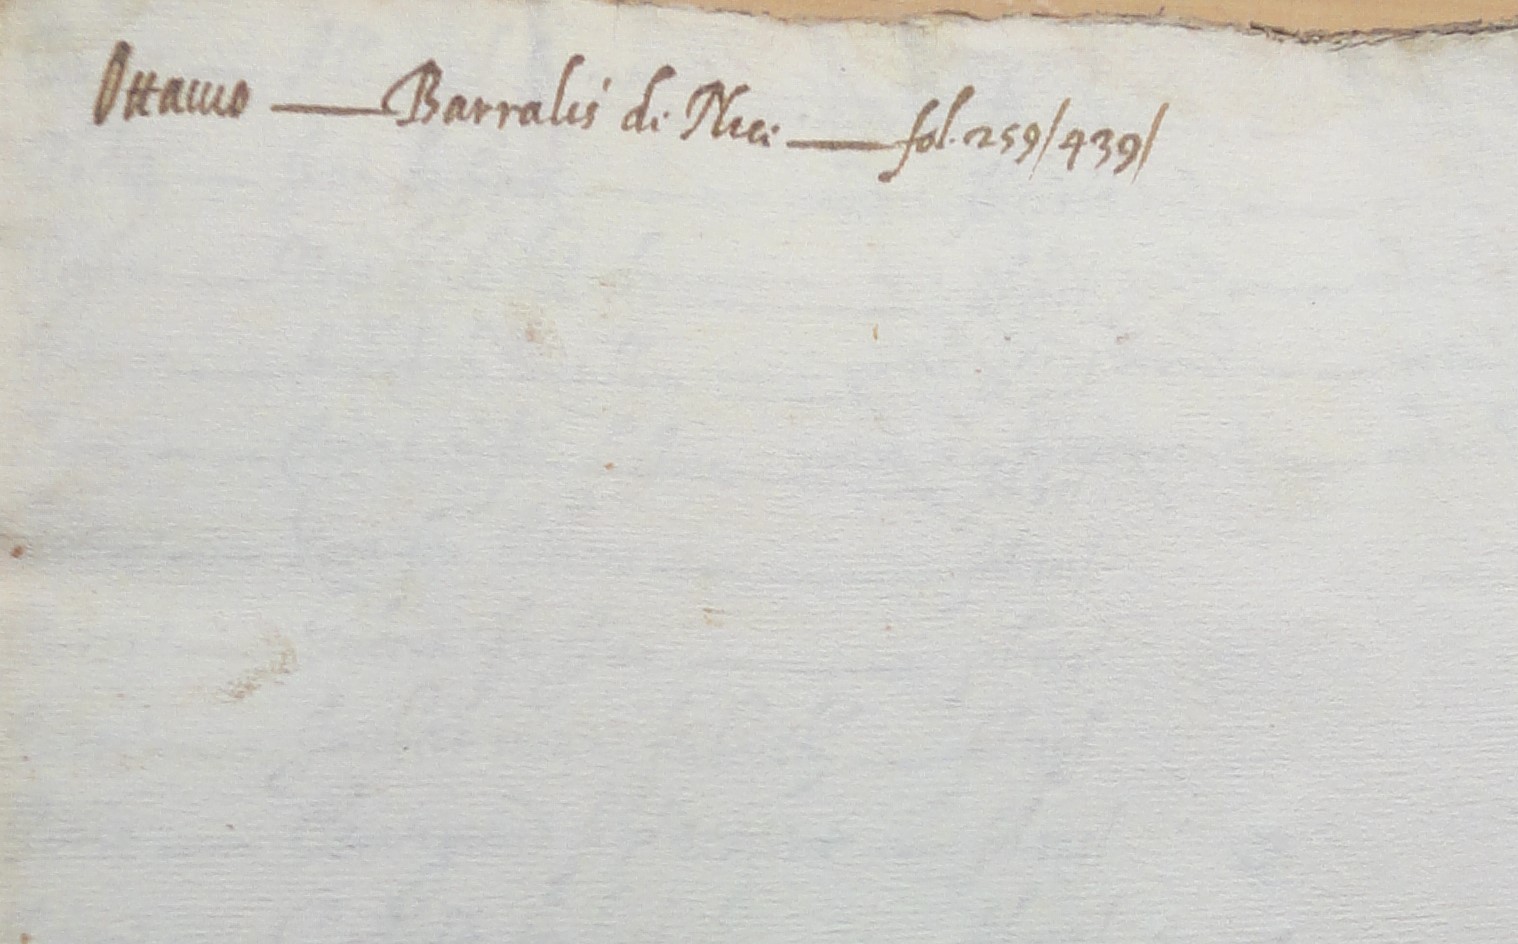 Ottauio — Barralis di Nici — fol. 259/439/